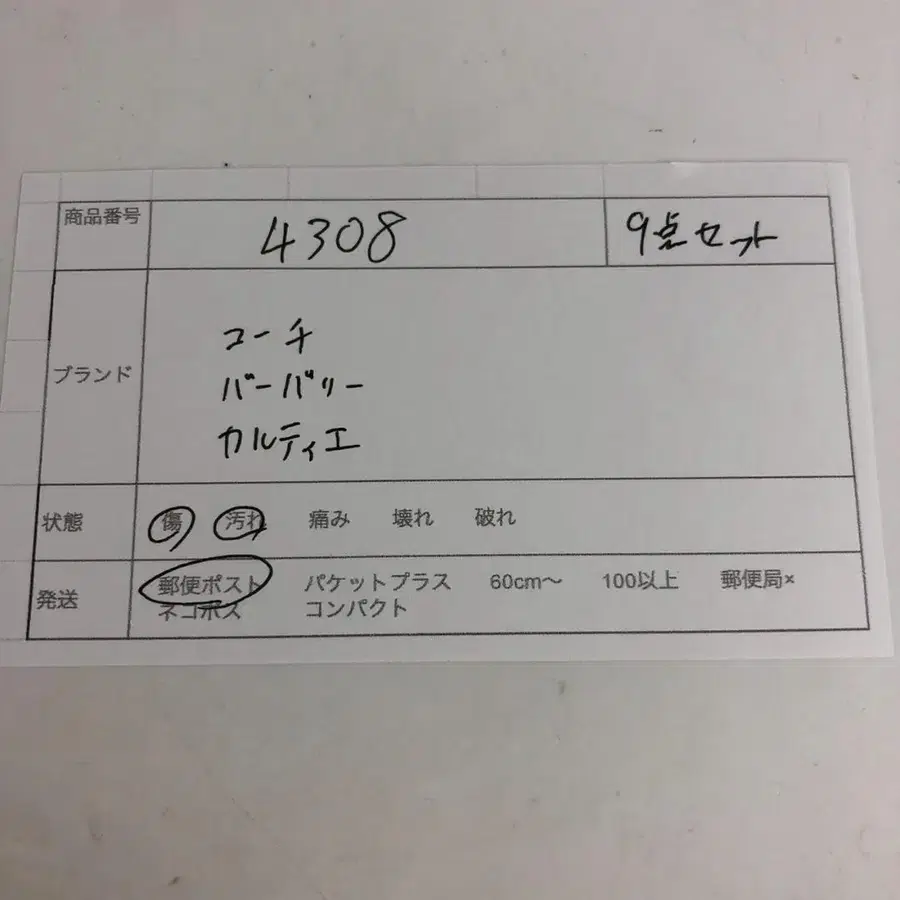 商品番号 4308 9点セット
ブランド
コーチ
バーバリー
カルティエ
状態 傷 汚れ 痛み 壊れ 破れ
発送 郵便ポスト パケットプラス 60cm〜 100以上 郵便局×
ネコポス コンパクト